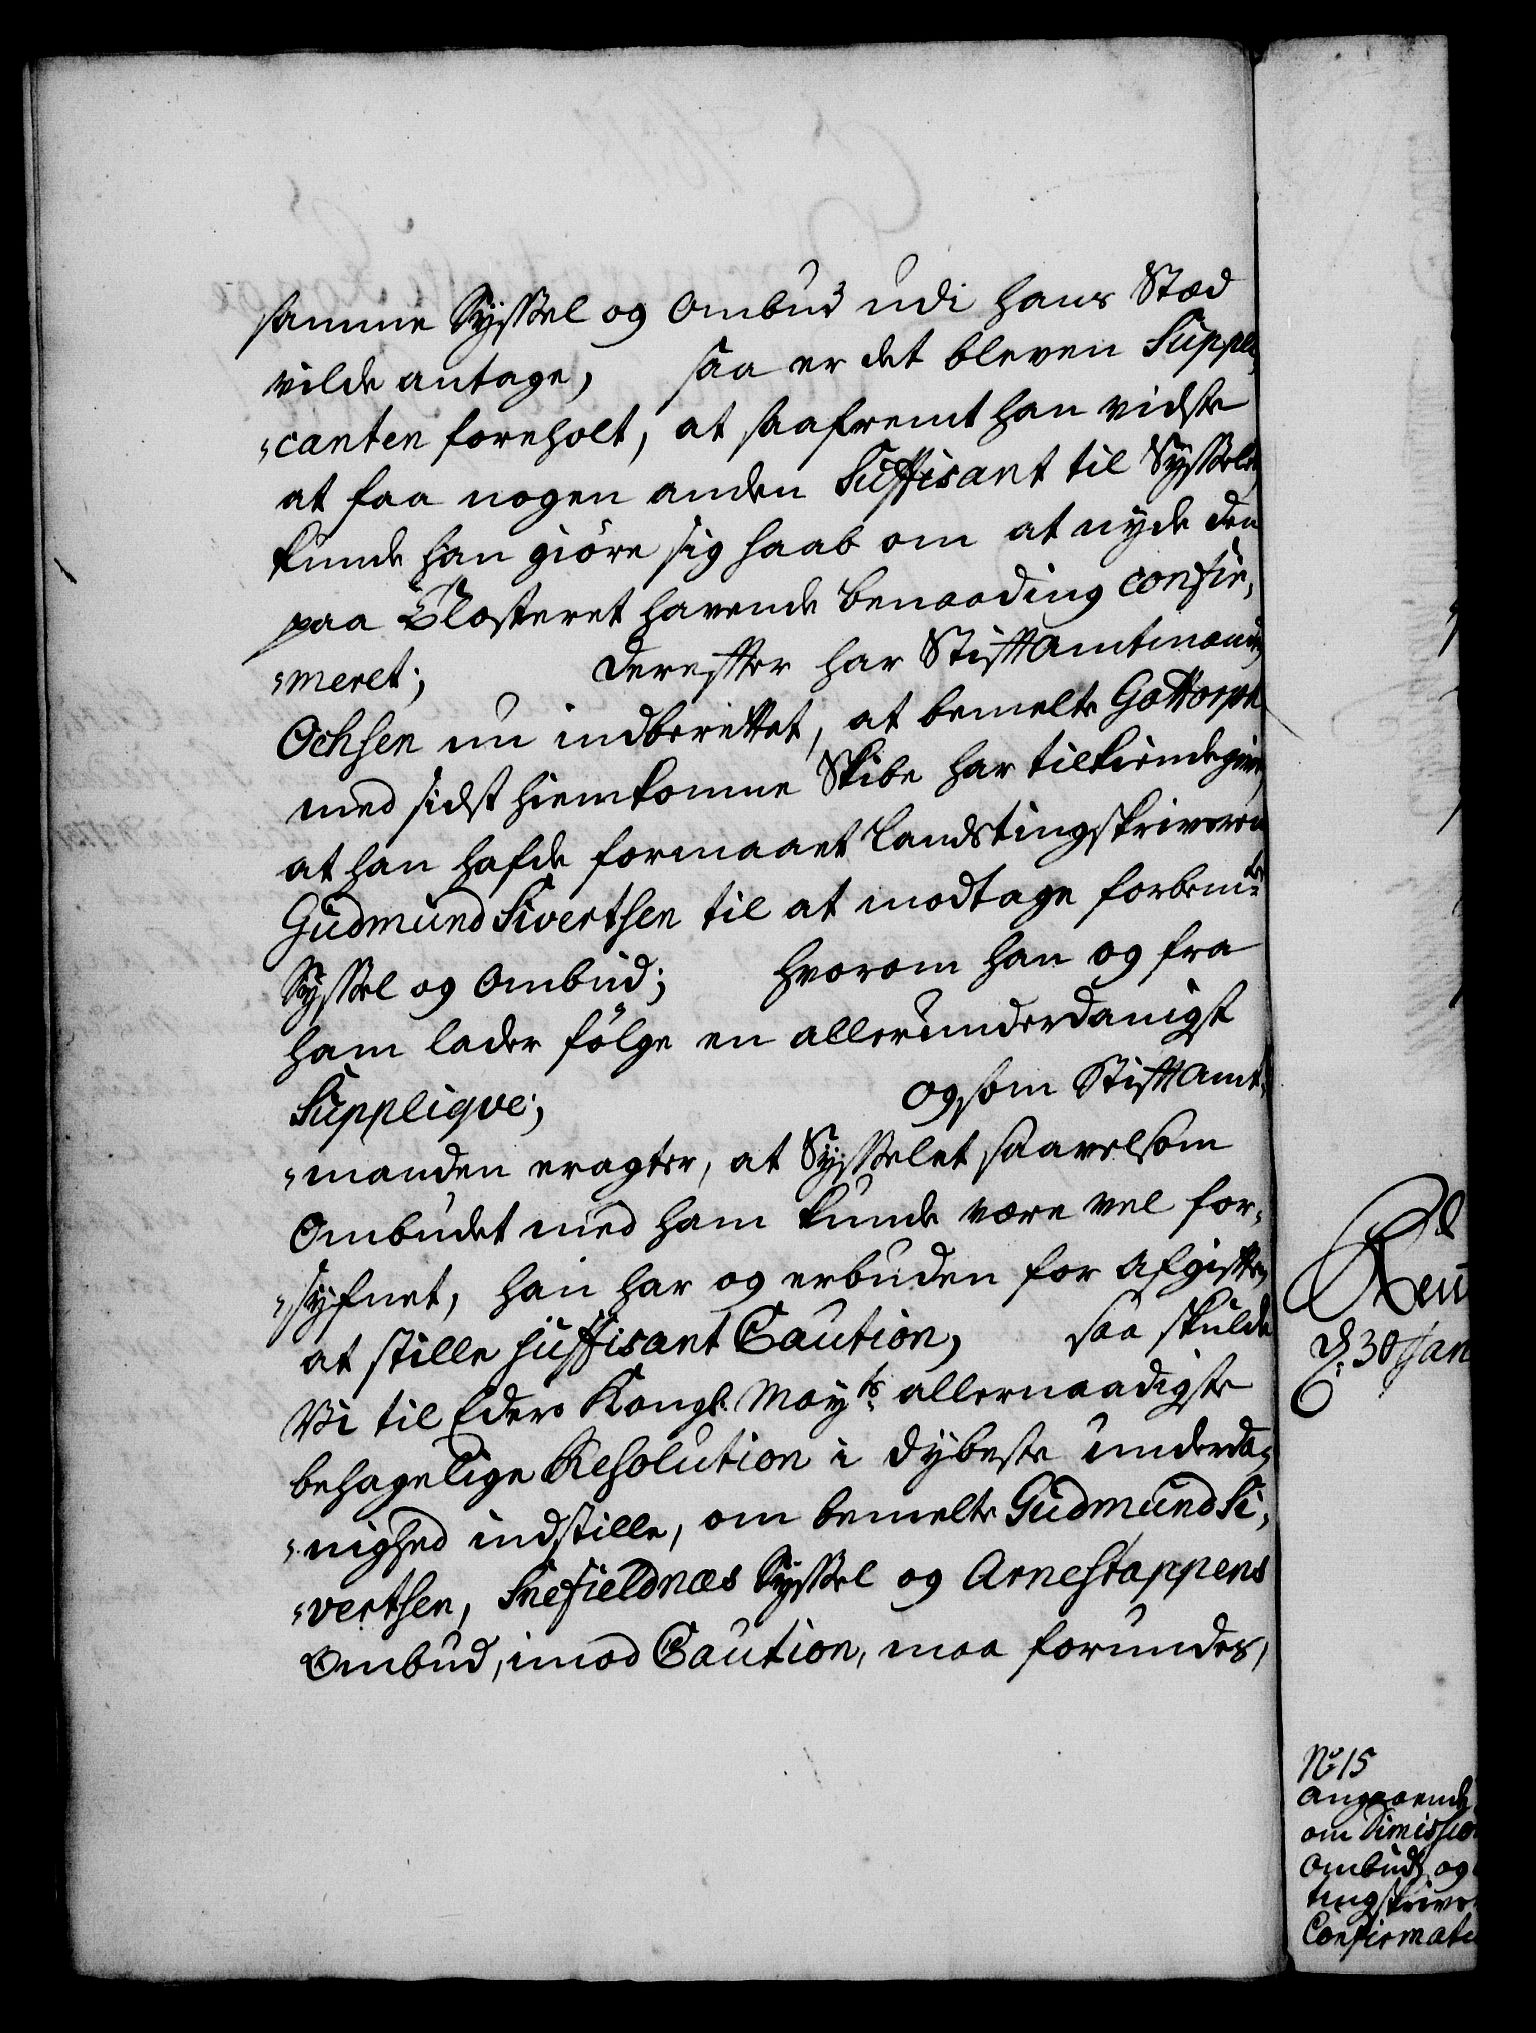 samme Syssel og Ombud udi hans Stæd
vilde antage, saa er det bleven Suppli,
„canten foreholt, at saafremt han vidste
at faa nogen anden Suffisant til Sysselet,
kunde han giöre sig haab om at nyde den
paa Closteret havende benaading confir,
„meret; derefter har Stiftamtmanden
Ochsen nu indberettet, at bemelte Gottorph
med sidst hiemkomne Skibe har tilkiendegivet,
at han hafde formaaet Landstingskriveren
Gudmund Sivertsen til at modtage forbemte
Syssel og Ombud; hvorom han og fra
ham lader fölge en allerunderdanigst
Supplique; og som Stiftamt,
„manden eragter, at Sysselet saavelsom
Ombudet med ham kunde være vel for,
„syfnet, han har og erbuden for Afgiften
at stille suffisant Caution, saa skulde
Vi til Eders Kongl. Mayts. allernaadigste
behagelige Resolution i dybeste underda,
„nighed indstille, om bemelte Gudmund Si,
„vertsen, Snefieldnæs Syssel og Arnestappens
Ombud, imod Caution, maa forundes,
Ren
d. 30 Jan
No 15
Angaaende
om Dimission
Ombud, og
tingskrive
Confirmati